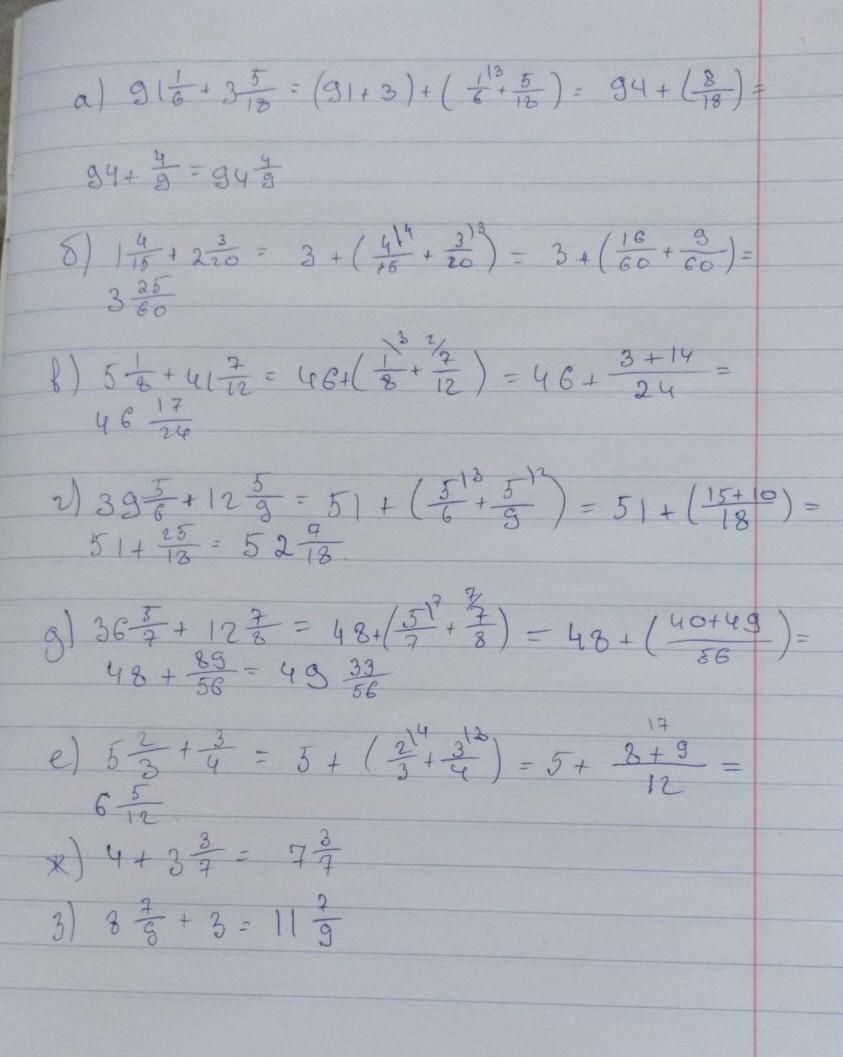 а) 91 1/6 + 3 5/18 = (91 + 3) + (1\3/6 + 5/18) = 94 + (8/18) =
94 + 4/9 = 94 4/9
б) 1 4/15 + 2 3/20 = 3 + (4\4/15 + 3\3/20) = 3 + (16/60 + 9/60) =
3 25/60
в) 5 1/8 + 41 7/12 = 46 + (1\3/8 + 2/7/12) = 46 + 3 + 14/24 =
46 17/24
г) 39 5/6 + 12 5/9 = 51 + (5\3/6 + 5\2/9) = 51 + (15 + 10/18) =
51 + 25/18 = 52 7/18.
д) 36 5/7 + 12 7/8 = 48 + (5\7/7 + 7/7/8) = 48 + (40 + 49/56) =
48 + 89/56 = 49 33/56
е) 5 2/3 + 3/4 = 5 + (2\4/3 + 3\3/4) = 5 + 17 8 + 9/12 =
6 5/12
ж) 4 + 3 3/7 = 7 3/7
з) 8 7/9 + 3 = 11 7/9